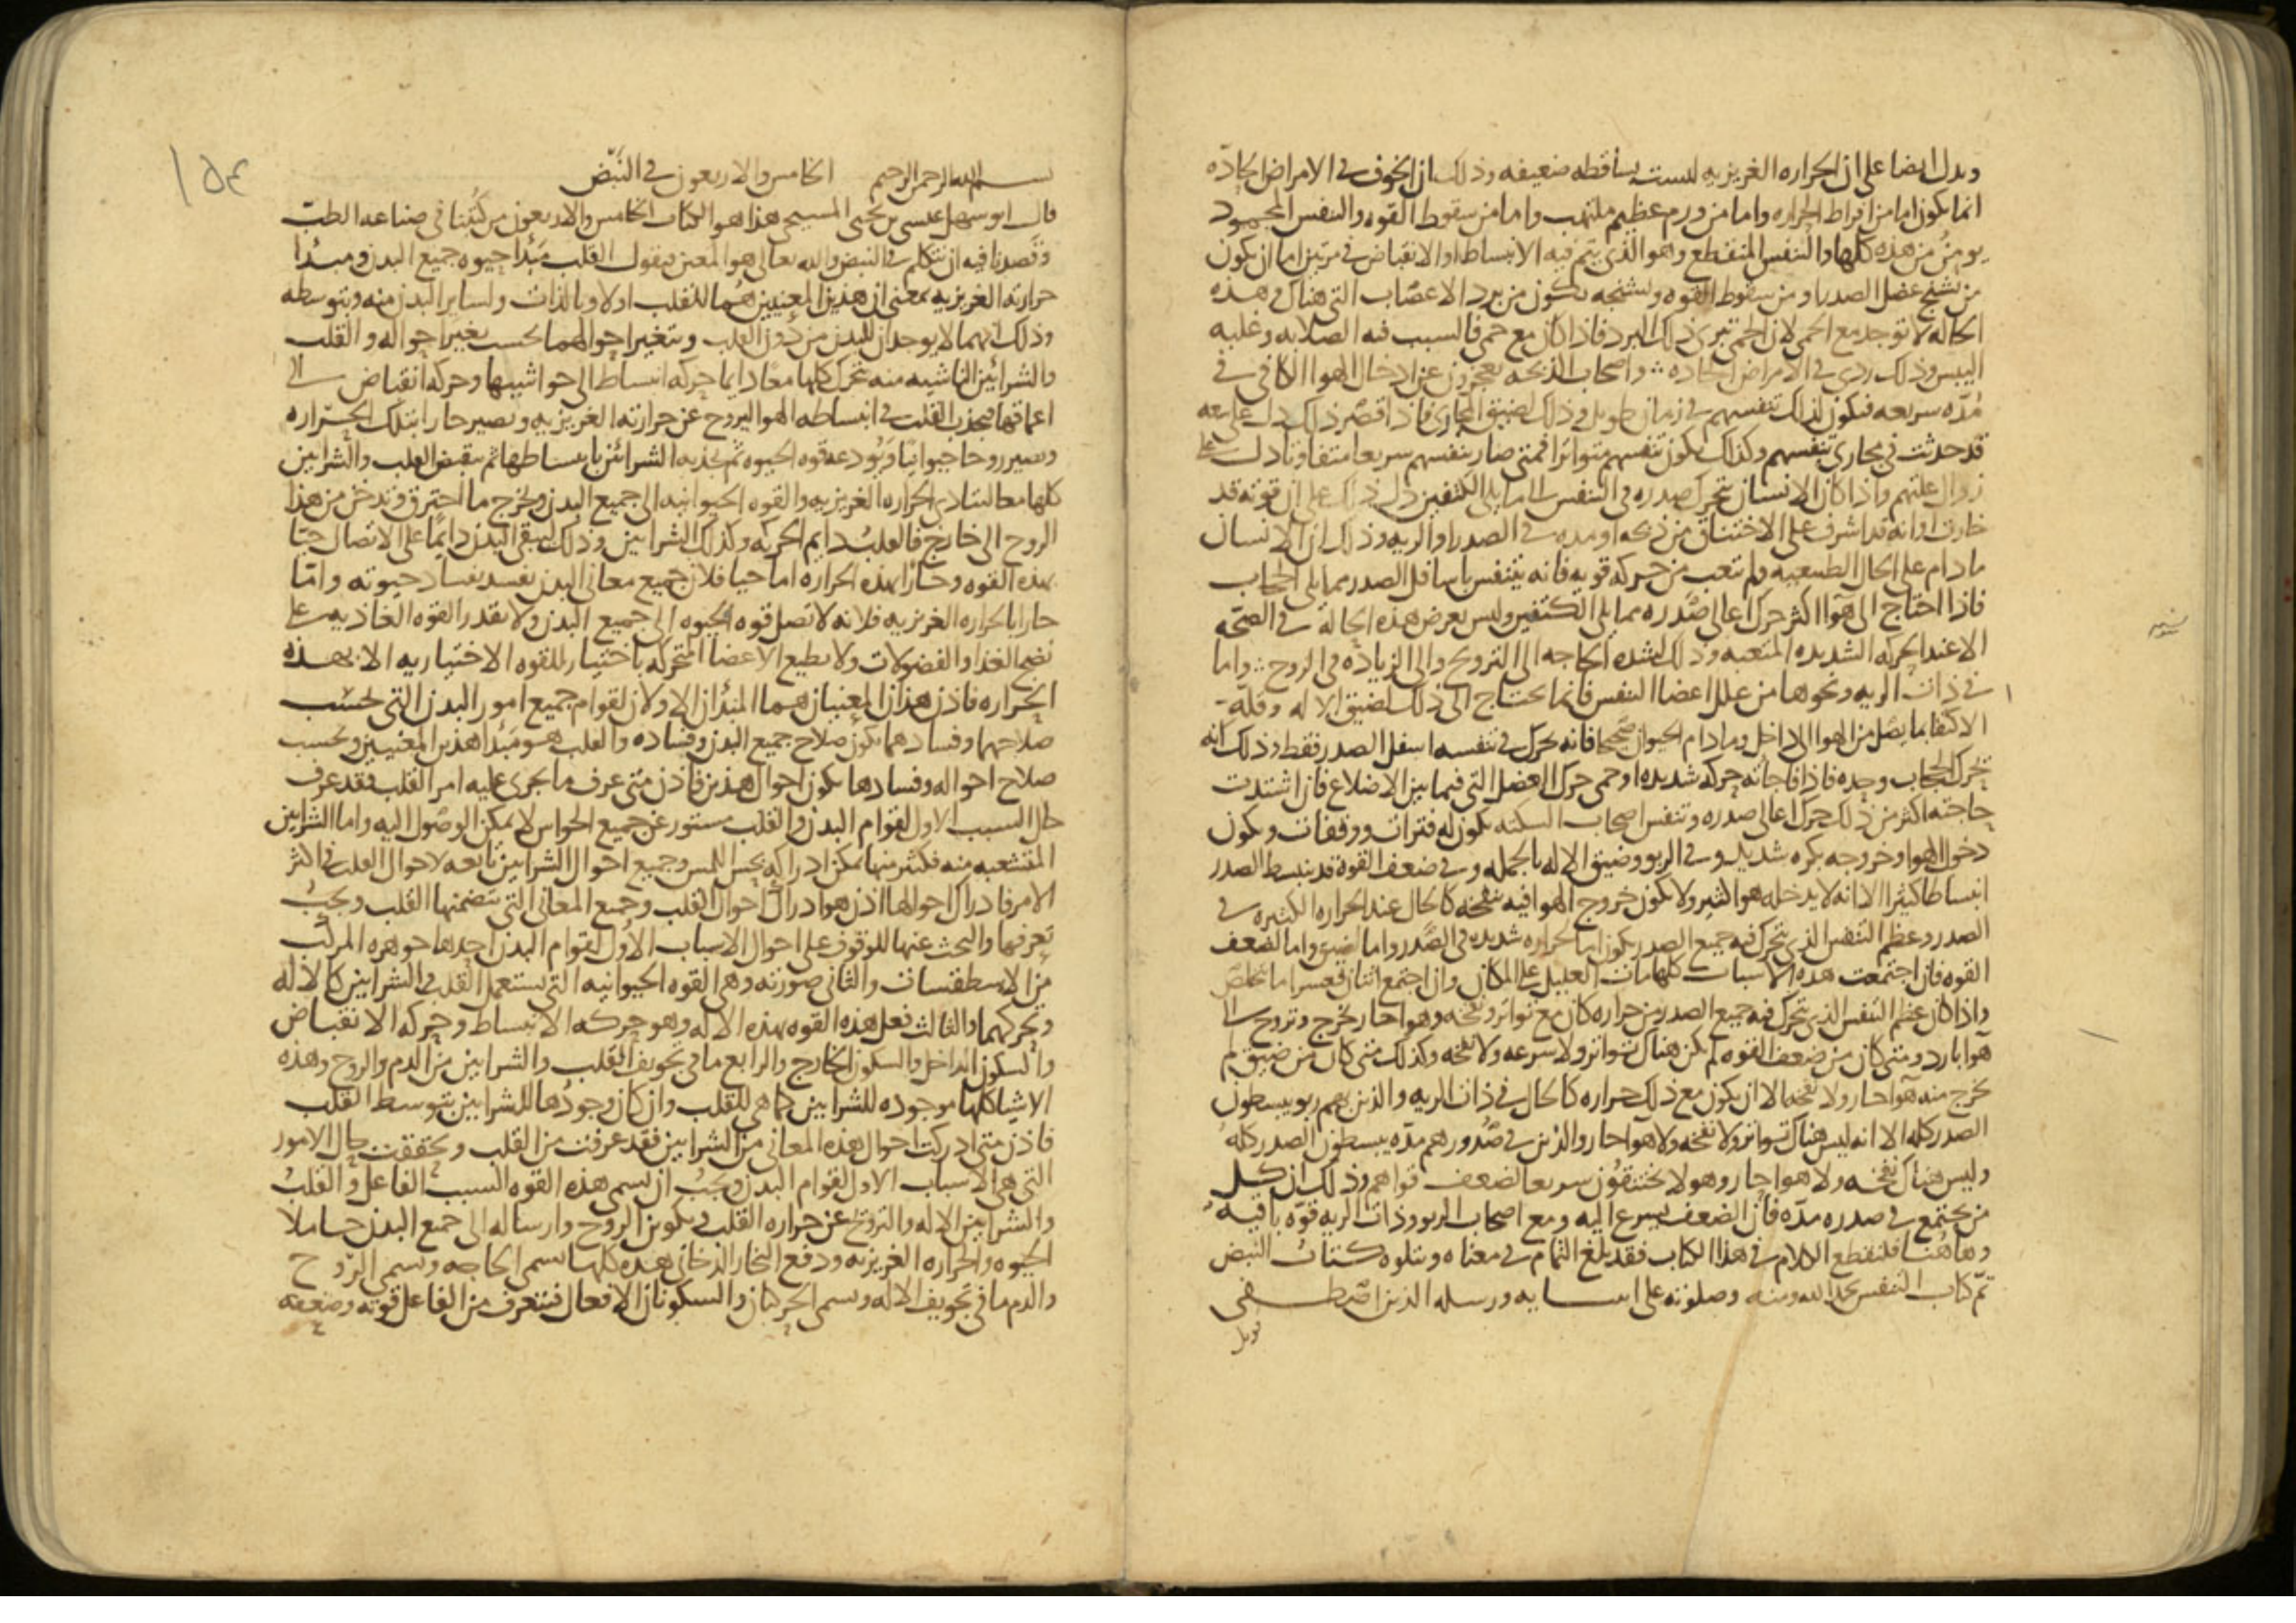 ويدل ايضا على ان الحراره الغريزيه ليست بساقطه ضعيفه وذلك ان الخوف في الامراض الحادّه
انما يكون اما من افراط الحراره واما من ورم عظيم ملتهب واما من سقوط القوه والنفس المحمود
يومن من هذه كلها والنفس المنقطع وهو الذي يتم فيه الانبساط او الانقباض في مرتين اما ان يكون
من تشنج عضل الصدر او من سقوط القوه وتشنجه يكون من برد الاعصاب التي هناك وهذه
الحاله لا توجد مع الحمى لان الحمى تبرى ذلك البرد فاذا كان مع حمى فالسبب فيه الصلابه وغلبه
اليبس وذلك ردى في الامراض الحاده واصحاب الذبحه يعجزون عن ادخال الهوا الكافي في
مُدّه سريعه فيكون لذلك تنفسهم في زمان طويل وذلك لضيق المجارى فاذا قصر ذلك دل على سعه
قد حدثت في مجارى تنفسهم وكذلك يكون تنفسهم متواترا فمتى صار تنفسهم سريعا متفاوتا دل على
زوال علتهم واذا كان الانسان يتحرك صدره في التنفس الى ما يلى الكتفين دل ذلك على ان قوته قد
خارت او انه قد اشرف على الاختناق من ذبحه او مده في الصدر او الريه وذلك ان الانسان
ما دام على الحال الطبيعيه ولم يتعب من حركه قويه فانه يتنفس باسافل الصدر مما يلى الحجاب
فاذا احتاج الى هوا اكثر حرك اعالى صَدره مما يلى الكتفين وليس يعرض هذه الحاله في الصحّه
الا عند الحركه الشديده المتعبه وذلك لشده الحاجه الى الترويح والى الزيادة في الروح واما
في ذات الريه ونحوها من علل اعضا النفس فانما يحتاج الى ذلك لضيق الاله وقله
الاكتفا بما يصل من الهوا الى داخل وما دام الحيوان صَحيحا فانه يحرك في تنفسه اسفل الصدر فقط وذلك انه
يحرك الحجاب وحده فاذا فاجاته حركه شديده او حمى حرك العضل التي فيما بين الاضلاع فان اشتدت
حاجته اكثر من ذلك حرك اعالى صدره وتنفس اصحاب السكته يكون له فترات ووقفات ويكون
دخول الهوا وخروجه بكره شديد وفي الربو وضيق الاله بالجمله وفي ضعف القوة قد ينبسط الصدر
انبساطا كثيرا الا انه لا يدخله هوا كثير ولا يكون خروج الهوا فيه بنفخه كالحال عند الحراره الكثيره في
الصدر وعظم التنفس الذي يتحرك فيه جميع الصدر يكون اما لحراره شديده في الصَدر واما لضيق واما لضعف
القوه فان اجتمعت هذه الاسباب كلها مات العليل على المكان وان اجتمع اثنان فعسر اما تخلص
واذا كان عظم التنفس الذي يتحرك فيه جميع الصدر من حراره كان مع تواتر ونفخه وهوا حار يخرج وتروح الى
هوا بارد ومتى كان من ضعف القوه لم يكن هناك تواتر ولا سرعه ولا نفخه وكذلك متى كان من ضيق لم
يخرج منه هوا حار ولا نفخه الا ان يكون مع ذلك حراره كالحال في ذات الريه والذين بهم ربو يبسطون
الصدر كله الا انه ليس هناك تواتر ولا نفخه ولا هوا حار والذين في صُدورهم مدّه يبسطون الصدر كله
وليس هناك نفخه ولا هوا حار وهولا يختنقُون سريعا لضعف قواهم وذلك ان كل
من يجتمع في صدره مدّه فان الضعف يسرع اليه ومع اصحاب الربو وذات الريه قوّه باقيه
وهاهُنا فلنقطع الكلام في هذا الكتاب فقد بلغ التمام في معناه ويتلوه كتاب النبض
تمّ كتاب التنفس بحمد الله ومنه وصلوته على انبيايه ورسله الذين اصطفى
قوبل
١٥٤
بسم الله الرحمن الرحيم الخامس والاربعون في النَّبّض
قال ابو سهل عيسى بن يحيى المسيحي هذا هو الكتاب الخامس والاربعون من كُتُبنا في صناعه الطب
وقَصدنا فيه ان نتكلم في النبض والله تعالى هو المعين فيقول القلب مَبْدا حيوه جميع البدن ومبدا
حرارته الغريزيه بمعنى ان هذين المعنيين هُما للقلب اولا وبالذات ولساير البدن منه وبتوسطه
وذلك انهما لا يوجدان للبدن من دُون القلب وتتغير احوالهما بحسب تغير احواله والقلب
والشرائين الناشيه منه تتحرك كلها معًا دايما حركه انبساط الى حواشيها وحركه انقباض الى
اعماقها فيجذب القلب في انبساطه الهوا ليروح عن حرارته الغريزيه ويصير حارا بتلك الحراره
وتصير روحا حيوانيًا وَيُودعه قوه الحيوه ثم تجذبه الشرائن بانبساطها ثم ينقبض القلب والشرايين
كلها معا لتتادى الحراره الغريزيه والقوه الحيوانيه الى جميع البدن ويخرج ما احترق وتدخن من هذا
الروح الى خارج فالقلبُ دايم الحركه وكذلك الشرايين وذلك ليبقى البدن دايمًا على الاتصال حيّا
بهذه القوه وحارا بهذه الحراره اما حيا فلان جميع معانى البدن تفسد بفساد حيوته وامّا
حارا بالحراره الغريزيه فلانه لا تصل قوه الحيوه الى جميع البدن ولا تقدر القوه الغاذيه على
نضج الغذا والفضولات ولا يطيع الاعضا المتحركه باختيار للقوه الاختياريه الا بهذه
الحراره فاذن هذان المعنيان هما المبدْان الاولان لقوام جميع امور البدن التي بحسب
صلاحهما وفسادهما يكون صلاح جميع البدن وفساده والقلب هو مَبدا هذين المعنيين وبحسب
صلاح احواله وفسادها يكون احوال هذين فاذن متى عرف ما يجرى عليه امر القلب فقد عرف
حال السبب الاول لقوام البدن والقلب مستور عن جميع الحواس لا يمكن الوصول اليه واما الشرايين
المتشعبه منه فكثير منها يمكن ادراكه بحس اللمس وجميع احوال الشرايين تابعه لاحوال القلب في اكثر
الامر فادراك احوالها اذن هو ادراك احوال القلب وجميع المعانى التي يتضمنها القلب ويجبُ
تعرفها والبحث عنها للوقوف على احوال الاسباب الاُول لقوام البدن احدها جوهره المركّب
من الاسطقسات والثاني صورته وهى القوه الحيوانيه التي يستعمل القلب والشرايين كالاله
وتحركهما والثالث فعل هذه القوه بهذه الاله وهو حركه الانبساط وحركه الانقباض
والسكون الداخل والسكون الخارج والرابع ما في تجويف القلب والشرايين من الدم والروح وهذه
الاشيا كلها موجوده للشرايين كما هي للقلب وان كان وجودُها للشرايين بتوسط القلب
فاذن متى ادركت احوال هذه المعانى من الشرايين فقد عرفت من القلب وتحققت حال الامور
التي هي الاسباب الاول لقوام البدن ويجبُ ان يسمى هذه القوه السبب الفاعل والقلبُ
والشرايين الاله والترويح عن حراره القلب وتكوين الروح وارساله الى جميع البدن حاملا
الحيوه والحراره الغريزيه ودفع البخار الدخانى هذه كلها تسمى الحاجه وتسمى الرّوح
والدم ما في تجويف الاله وتسمى الحركتان والسكونان الافعال فتتعرف من الفاعل قوته وضعفه